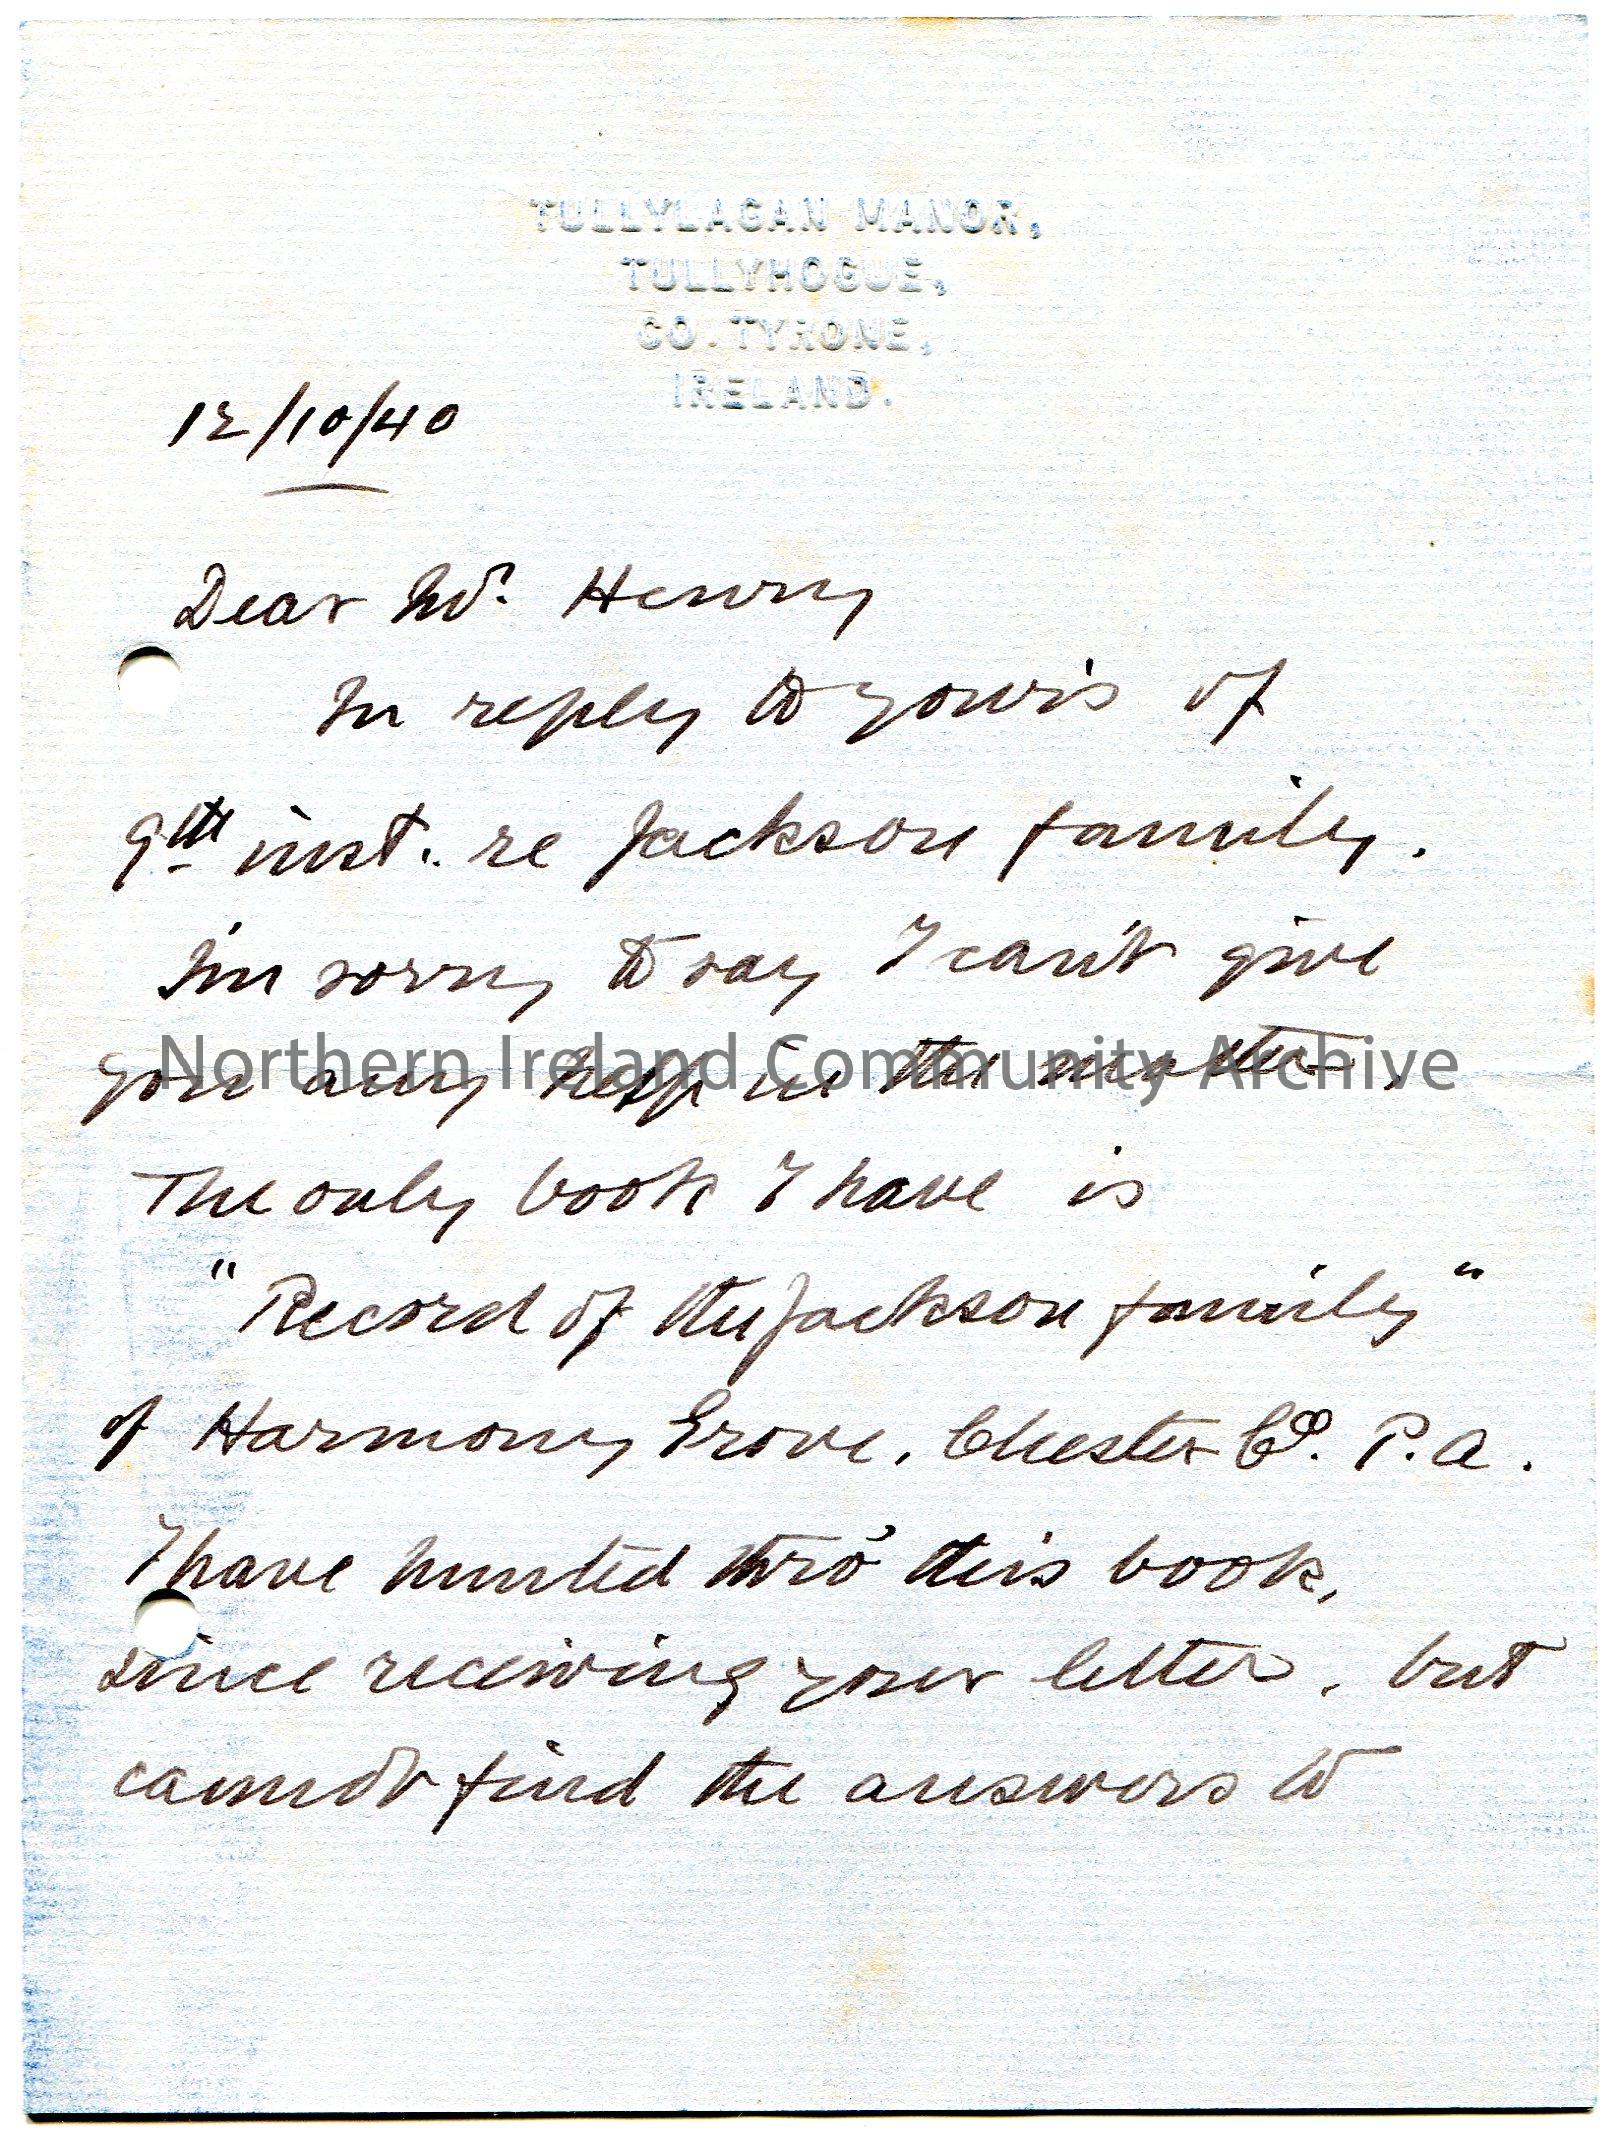 TULLYLAGAN MANOR,
TULLYHOGUE,
CO. TYRONE,
IRELAND.
12/10/40
Dear Mr. Henry
In reply to your's of
9th inst. re Jackson family.
I'm sorry to say I can't give
you any help in the matter.
Northern Ireland Community Archive
The only book I have is
"Record of the Jackson family"
of Harmony Grove, Chester Co. P.A.
I have hunted thro' this book,
since receiving your letter, but
cannot find the answers to